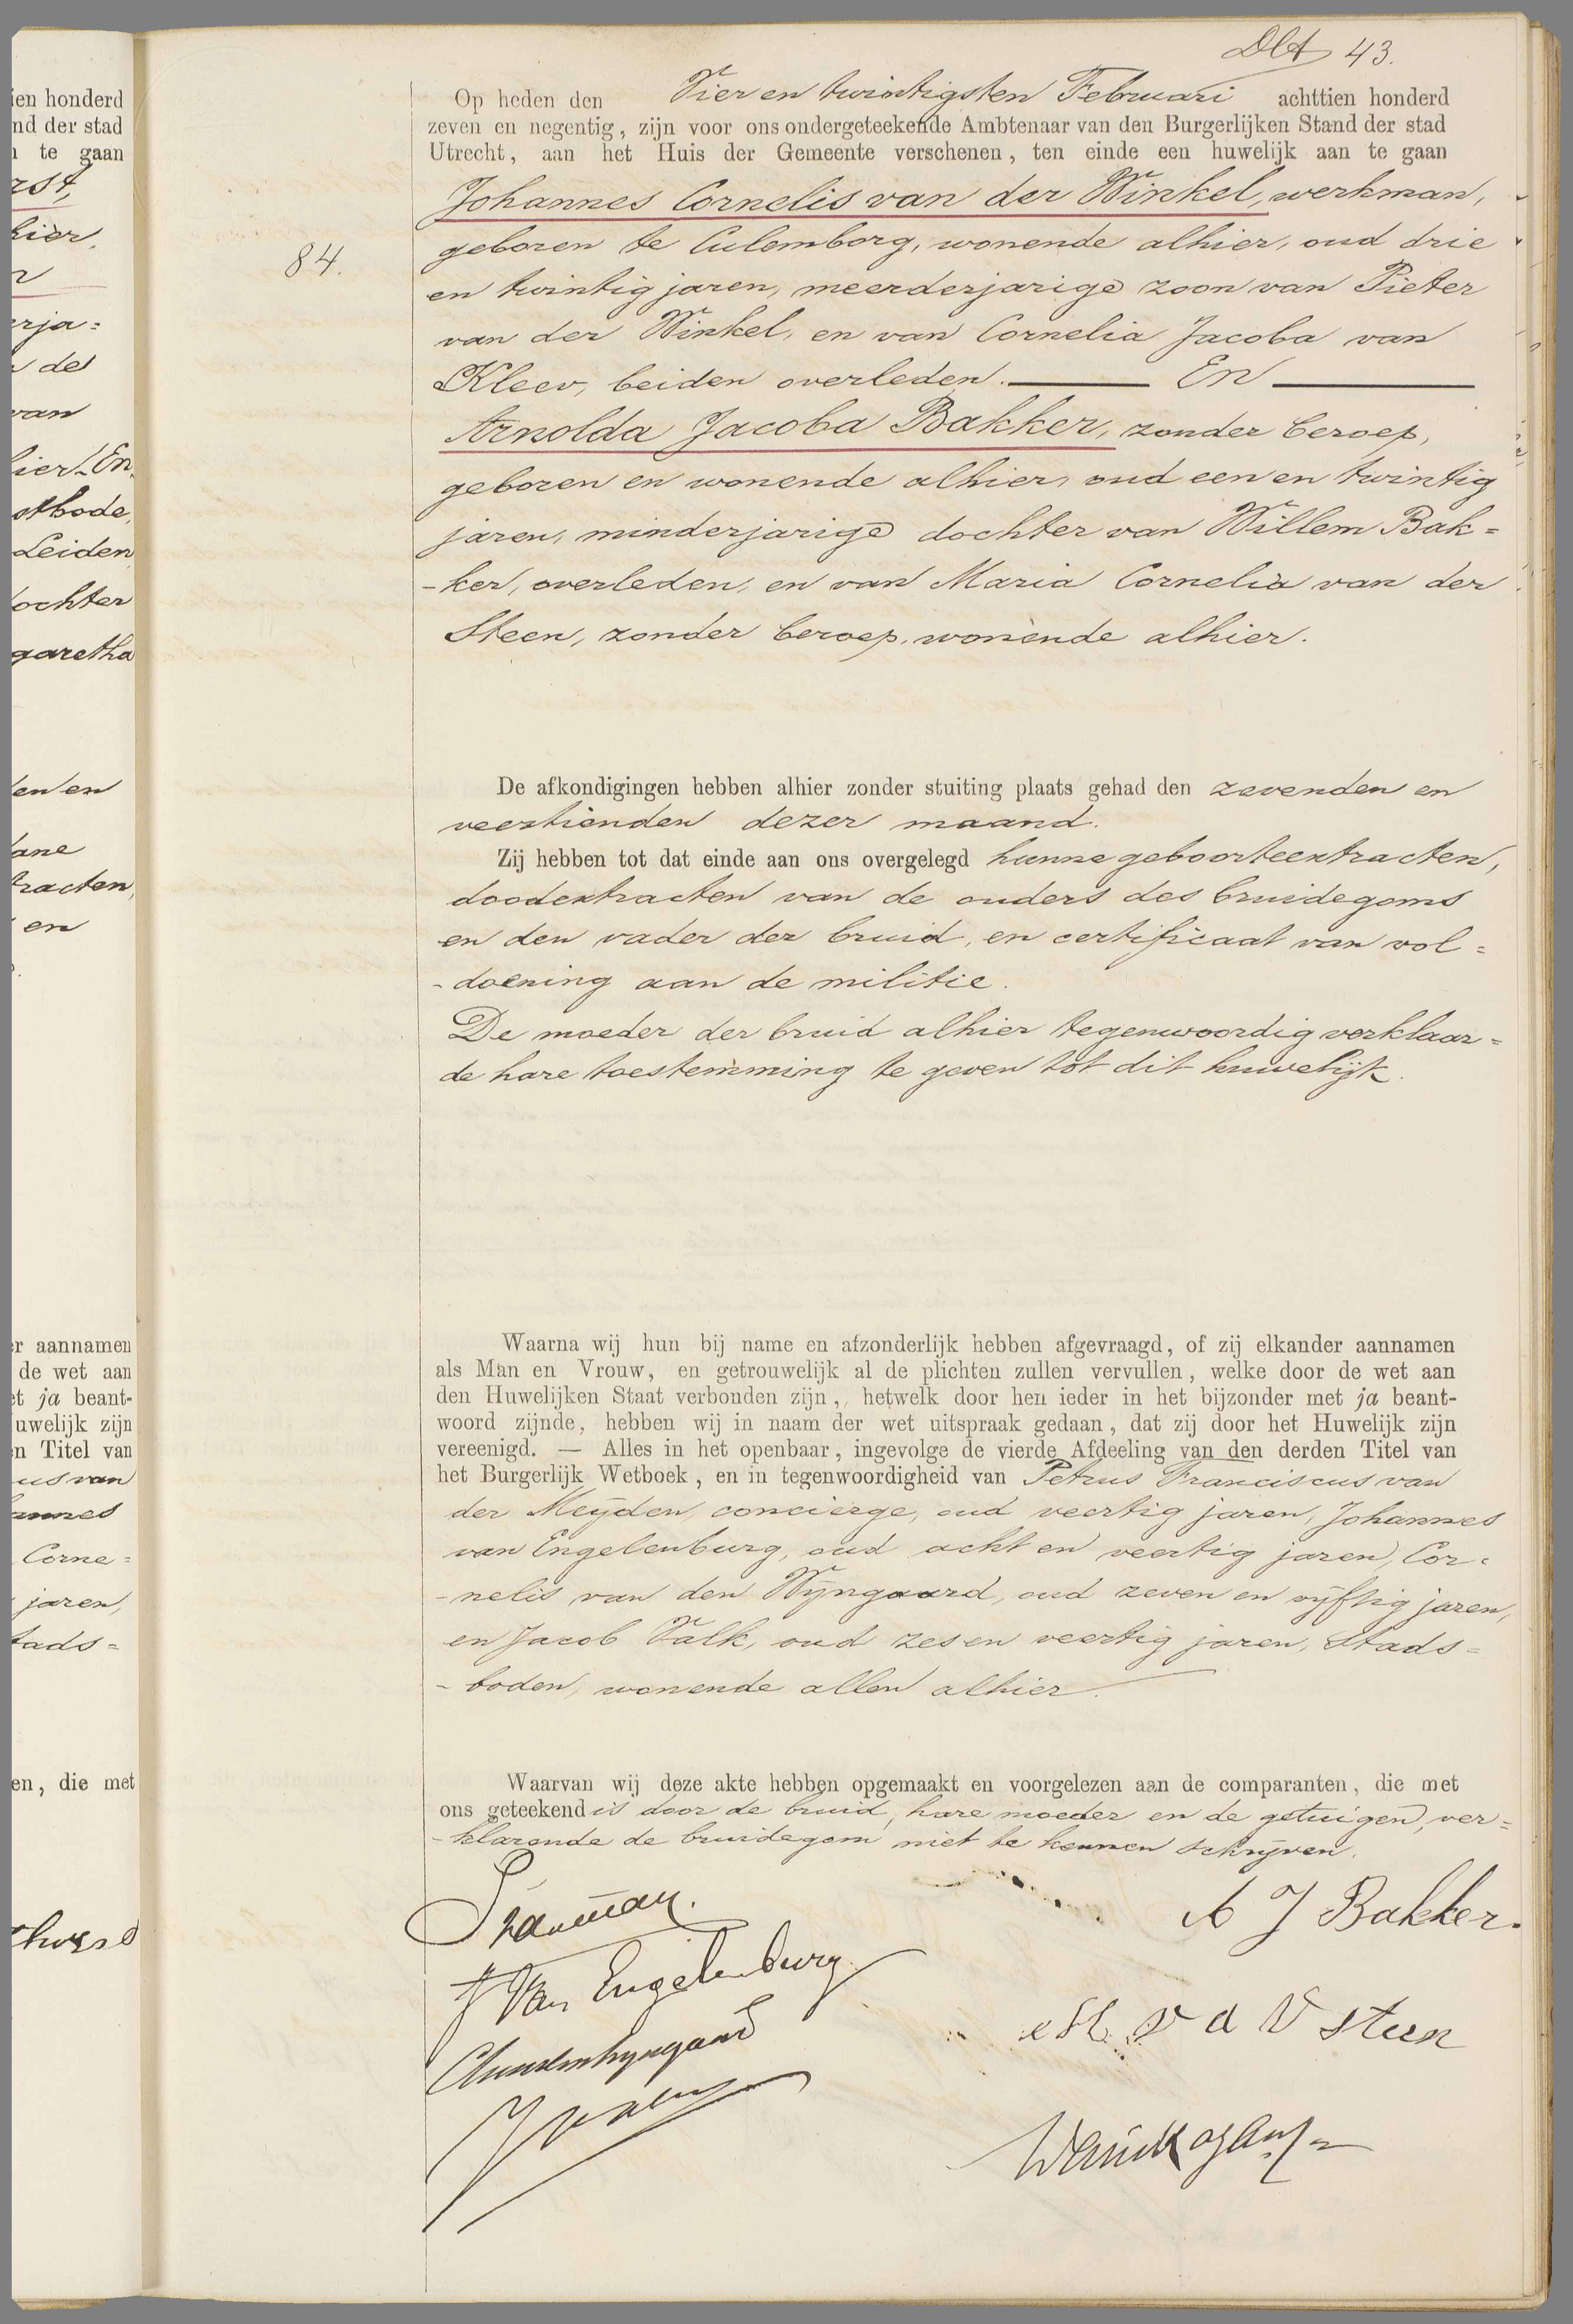 ien honderd
nd der stad
n te gaan
rst,
hier,
n
erja=
de
van
hier. En
stbode,
Leiden
dochter
garetha
en en
ane
tracten,
en
er aannamen
de wet aan
et ja beant-
uwelijk zijn
en Titel van
us van
annes
Corne=
jaren,
tads=
en, die met
43.
Op heden den Vier en twintigsten Februari achttien honderd
zeven en negentig, zijn voor ons ondergeteekende Ambtenaar van den Burgerlijken Stand der stad
Utrecht, aan het Huis der Gemeente verschenen, ten einde een huwelijk aan te gaan
84.
Johannes Cornelis van der Winkel, werkman,
geboren te Culemborg, wonende alhier, oud drie
en twintig jaren, meerderjarige zoon van Pieter
van der Winkel, en van Cornelia Jacoba van
Kleev, beiden overleden. — En —
Arnolda Jacoba Bakker, zonder beroep,
geboren en wonende alhier, oud een en twintig
jaren, minderjarige dochter van Willem Bak=
-ker, overleden, en van Maria Cornelia van der
Steen, zonder beroep, wonende alhier.
De afkondigingen hebben alhier zonder stuiting plaats gehad den zevenden en
veertienden dezer maand.
Zij hebben tot dat einde aan ons overgelegd hunne geboorteextracten,
doodextracten van de ouders des bruidegoms
en den vader der bruid, en certificaat van vol=
-doening aan de militie.
De moeder der bruid alhier tegenwoordig verklaar=
de hare toestemming te geven tot dit huwelijk.
Waarna wij hun bij name en afzonderlijk hebben afgevraagd, of zij elkander aannamen
als Man en Vrouw, en getrouwelijk al de plichten zullen vervullen, welke door de wet aan
den Huwelijken Staat verbonden zijn, hetwelk door hen ieder in het bijzonder met ja beant-
woord zijnde, hebben wij in naam der wet uitspraak gedaan, dat zij door het Huwelijk zijn
vereenigd. — Alles in het openbaar, ingevolge de vierde Afdeeling van den derden Titel van
het Burgerlijk Wetboek, en in tegenwoordigheid van Petrus Franciscus van
der Meijden, concierge, oud veertig jaren, Johannes
van Engelenburg, oud acht en veertig jaren, Cor=
-nelis van den Wijngaard, oud zeven en vijftig jaren,
en Jacob Valk, oud zes en veertig jaren, Stads=
-boden, wonende allen alhier.
Waarvan wij deze akte hebben opgemaakt en voorgelezen aan de comparanten, die met
ons geteekend is door de bruid, hare moeder en de getuigen, ver=
-klarende de bruidegom niet te kennen schrijven.
A J Bakker.
J Van Engelenburg
M. v d V steen